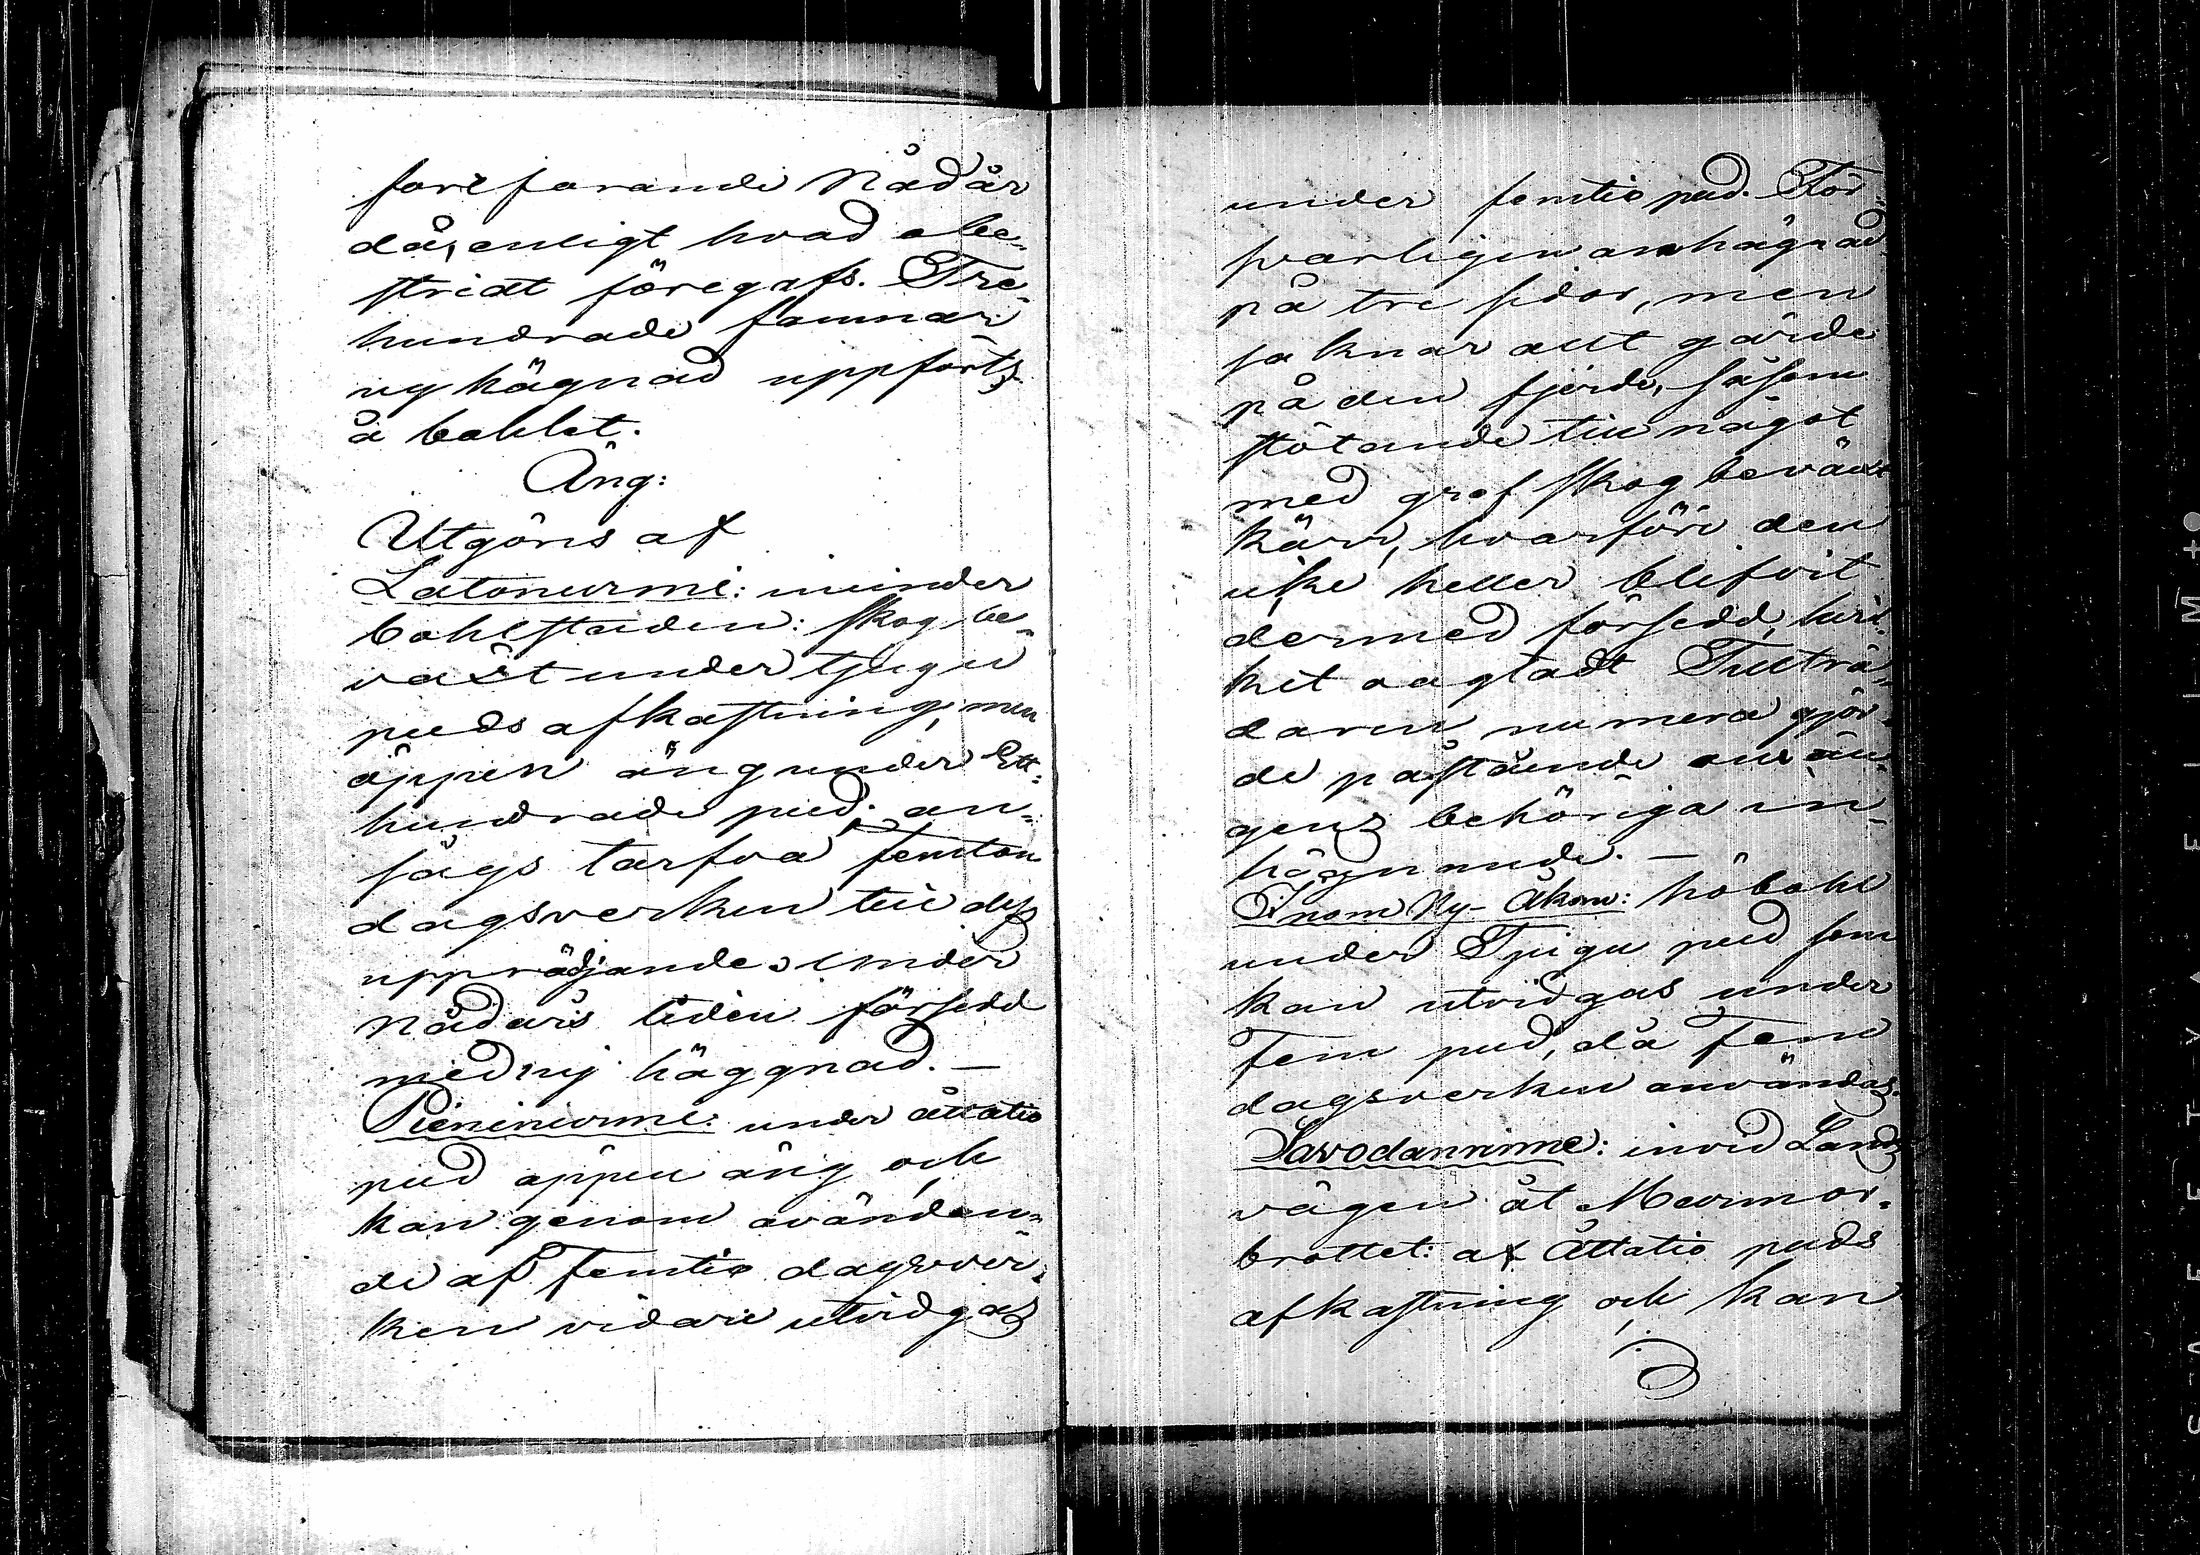 forefarande Nådår
då, enligt hvad obe-
stridt föregafs. Tre-
hundrade famnar
ny hägnad uppförts
å bohlet.
Äng:
Utgöres af
Latonurmi: invinder
bohlstaden: skog be-
växt under tjugu
puds afkastning, men
öppen äng under Ett-
hundrade pud; an-
sågs tarfva femton
dagsverken till dess
upprödjande. under
Nådårs tiden försedd
med ny häggnad. —
Pieninurmi: under åttatio
pud öppen äng och
kan genom avänden-
de af Femtio dagsver-
ken vidare utvidgas
under femtio pud. För-
svarligen omhägnad
på tre sidor, men
saknar allt gärde
på den fjerde, såsom
stötande till något
med grof skog beväxt
kärr, hvarföre den
icke heller blifvit
dermed försedd, hvil-
ket oagtadt Tillträ-
daren numera gjor-
de påstående om än-
gens behöriga in-
hägnande. —
Inom Ny-Åkern: höbohl
under Tjugu pud som
kan utvidgas under
Fem pud, då Fem
dagsverken användas.
Savodannime: invid Lands
vägen åt Marmor-
brottet: af Åttatio puds
afkastning och kan